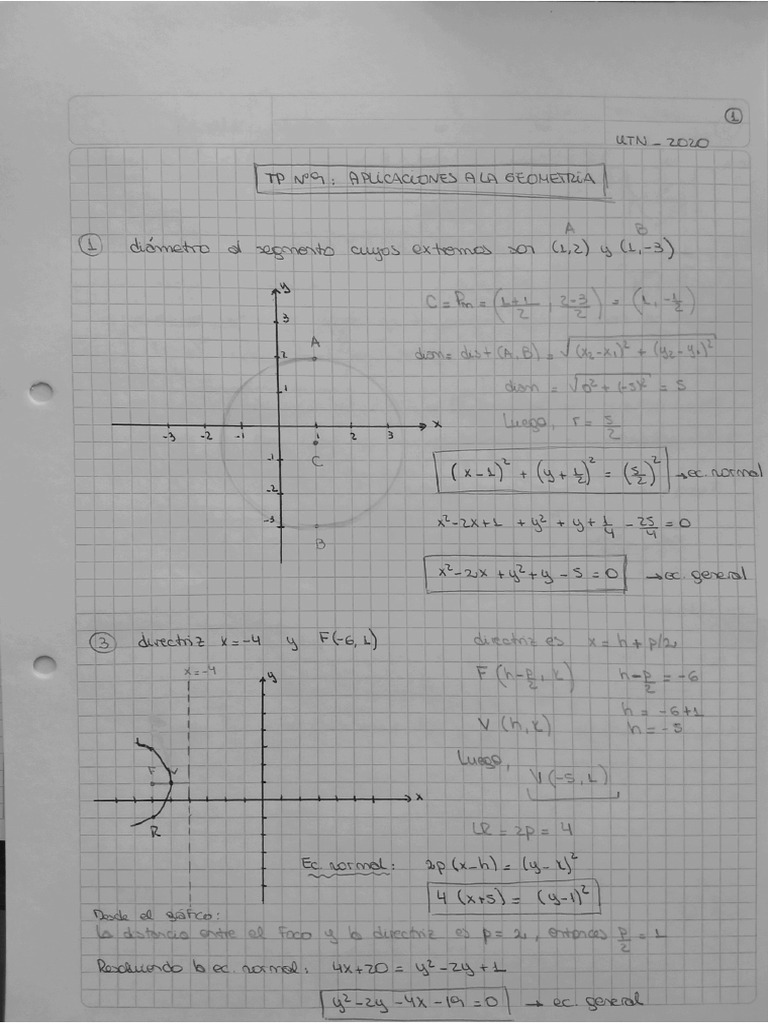 1
UTN - 2020
TP N°9: APLICACIONES A LA GEOMETRÍA
① diámetro el segmento cuyos extremos son (1,2) y (1,-3)
A B
y
3
2
1
-3 -2 -1 1 2 3 x
-1
-2
-3
A
C
B
C = Pm = (1+1/2 , 2-3/2) = (1, -1/2)
diam = dist (A,B) = √(x₂-x₁)² + (y₂-y₁)²
diam = √0² + (-5)² = 5
Luego, r = 5/2
(x-1)² + (y+1/2)² = (5/2)² → ec. normal
x²-2x+1 + y² + y + 1/4 - 25/4 = 0
x²-2x+y²+y-5=0 → ec. general
③ directriz x=-4 y F(-6,1)
x=-4
y
x
L
F V
R
directriz es x = h + p/2
F(h-p/2, k) h-p/2 = -6
h = -6+1
V(h,k) h = -5
Luego,
V(-5,1)
LR = 2p = 4
Ec. normal: 2p(x-h) = (y-k)²
4(x+5) = (y-1)²
Desde el gráfico:
la distancia entre el Foco y la directriz es p=2, entonces p/2 = 1
Resolviendo la ec. normal: 4x+20 = y²-2y+1
y²-2y-4x-19=0 → ec. general